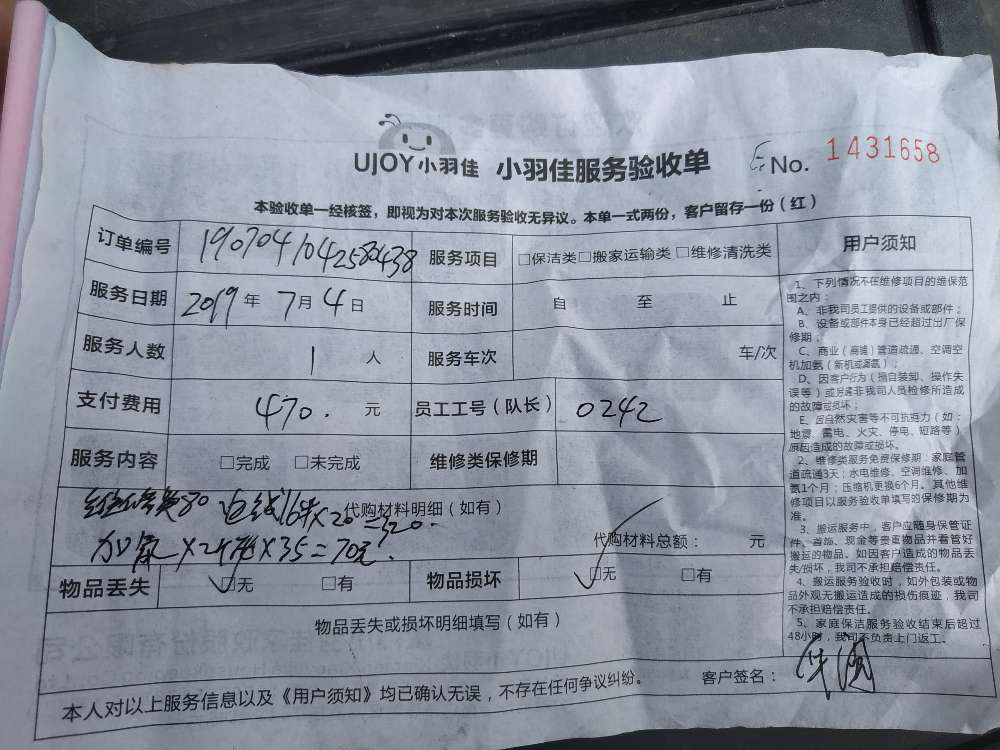 UJOY小羽佳 小羽佳服务验收单 No. 1431658
本验收单一经核签，即视为对本次服务验收无异议。本单一式两份，客户留存一份（红）
订单编号 190704104258438 服务项目 □保洁类□搬家运输类□维修清洗类
服务日期 2019年 7月4日 服务时间 自 至 止
服务人数 1 人 服务车次 车/次
支付费用 470. 元 员工工号（队长） 0242
服务内容 □完成 □未完成 维修类保修期
代购材料明细（如有）
维修费80 电线16米×20=320.
加氟×2××35=70元. 代购材料总额： 元
物品丢失 □无 □有 物品损坏 □无 □有
物品丢失或损坏明细填写（如有）
本人对以上服务信息以及《用户须知》均已确认无误，不存在任何争议纠纷。 客户签名：
用户须知
1、下列情况不在维修项目的维保范
围之内：
A、非我司员工提供的设备或部件；
B、设备或部件本身已经超过出厂保
修期；
C、商业（商铺）管道疏通、空调空
机加氨（新机或漏氨）；
D、因客户行为（擅自装卸、操作失
误等）或另请非我司人员检修所造成
的故障或损坏；
E、因自然灾害等不可抗拒力（如：
地震、雷电、火灾、停电、短路等）
原因造成的故障或损坏。
2、维修类服务免费保修期：家庭管
道疏通3天；水电维修、空调维修、加
氨1个月；压缩机更换6个月。其他维
修项目以服务验收单填写的保修期为
准。
3、搬运服务中，客户应随身保管证
件、首饰、现金等贵重物品并看管好
搬运的物品。如因客户造成的物品丢
失/损坏，我司不承担赔偿责任。
4、搬运服务验收时，如外包装或物
品外观无搬运造成的损伤痕迹，我司
不承担赔偿责任。
5、家庭保洁服务验收结束后超过
48小时，我司不负责上门返工。